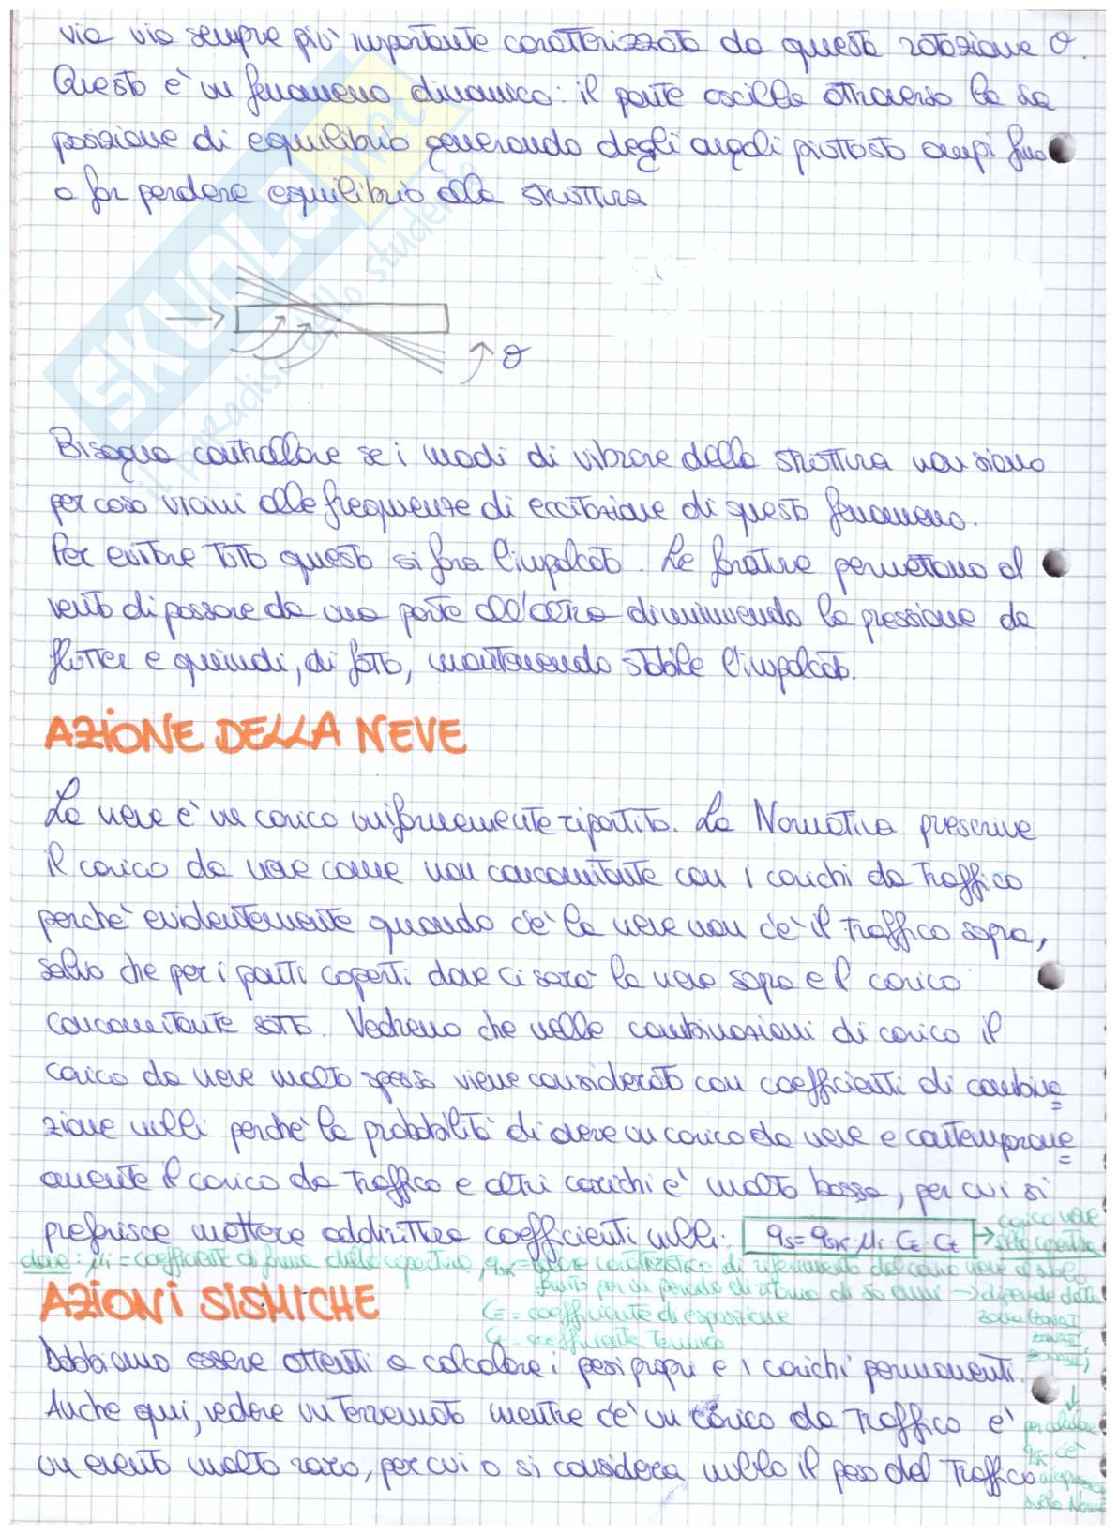 via via sempre più importante caratterizzata da questa rotazione θ.
Questo è un fenomeno dinamico: il ponte oscilla attraverso la sua
posizione di equilibrio generando degli angoli piuttosto ampi fino
a far perdere equilibrio alla struttura
θ
Bisogna controllare se i modi di vibrare della struttura non siano
per caso vicini alle frequenze di eccitazione di questo fenomeno.
Per evitare tutto questo si fora l'impalcato. Le forature permettono al
vento di passare da una parte all'altra diminuendo la pressione da
flutter e quindi, di fatto, mantenendo stabile l'impalcato.
AZIONE DELLA NEVE
La neve è un carico uniformemente ripartito. La Normativa prescrive
il carico da neve come non concomitante con i carichi da traffico
perché evidentemente quando c'è la neve non c'è il traffico sopra,
salvo che per i ponti coperti dove ci sarà la neve sopra e il carico
concomitante sotto. Vedremo che nelle combinazioni di carico il
carico da neve molto spesso viene considerato con coefficienti di combina=
zione nulli perché la probabilità di avere un carico da neve e contemporane=
amente il carico da traffico e altri carichi è molto bassa, per cui si
preferisce mettere addirittura coefficienti nulli: qs = qsk μi CE Ct → carico neve
sulla copertura
dove: μi = coefficiente di forma della copertura, qsk = valore caratteristico di riferimento del carico neve al suolo
riferito per un periodo di ritorno di 50 anni → dipende dalla
zona
AZIONI SISMICHE
CE = coefficiente di esposizione
Ct = coefficiente termico
Dobbiamo essere attenti a calcolare i pesi propri e i carichi permanenti.
Anche qui, vedere un terremoto mentre c'è un carico da traffico è
un evento molto raro, per cui o si considera nullo il peso del traffico
per calcolare
qsk c'è
della Norm
SKUOLA.net
il paradiso dello studente